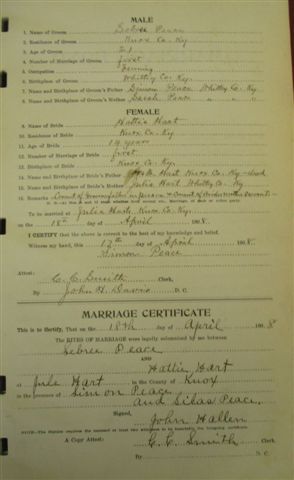 MALE
1. Name of Groom Sebree Peace
2. Residence of Groom Knox Co. Ky.
3. Age of Groom 21
4. Number of Marriage of Groom first
5. Occupation Farming
6. Birthplace of Groom Whitley Co. Ky.
7. Name and Birthplace of Groom's Father Simon Peace Whitley Co. Ky.
8. Name and Birthplace of Groom's Mother Sarah Peace " " "
FEMALE
9. Name of Bride Hattie Hart
10. Residence of Bride Knox Co. Ky.
11. Age of Bride 14 years
12. Number of Marriage of Bride first
13. Birthplace of Bride Knox Co. Ky.
14. Name and Birthplace of Bride's Father Hart Knox Co. Ky - dead
15. Name and Birthplace of Bride's Mother Julia Hart Whitley Co. Ky
16. Remarks Consent of Groom father in person
To be married at Julia Hart's, Knox Co. Ky.
on the 18th day of April 1918
I CERTIFY that the above is correct to the best of my knowledge and belief.
Witness my hand, this 17th day of April 1918
Simon Peace
Attest:
C. C. Smith Clerk.
By John H. Davis D. C.
MARRIAGE CERTIFICATE
This is to Certify, That on the 18th day of April 1918
The RITES OF MARRIAGE were legally solemnized by me between
Sebree Peace
AND
Hallie Hart
at Jule Hart in the County of Knox
in the presence of Simon Peace
and Silas Peace.
Signed, John Hallen
A Copy Attest: C. C. Smith Clerk
By D. C.